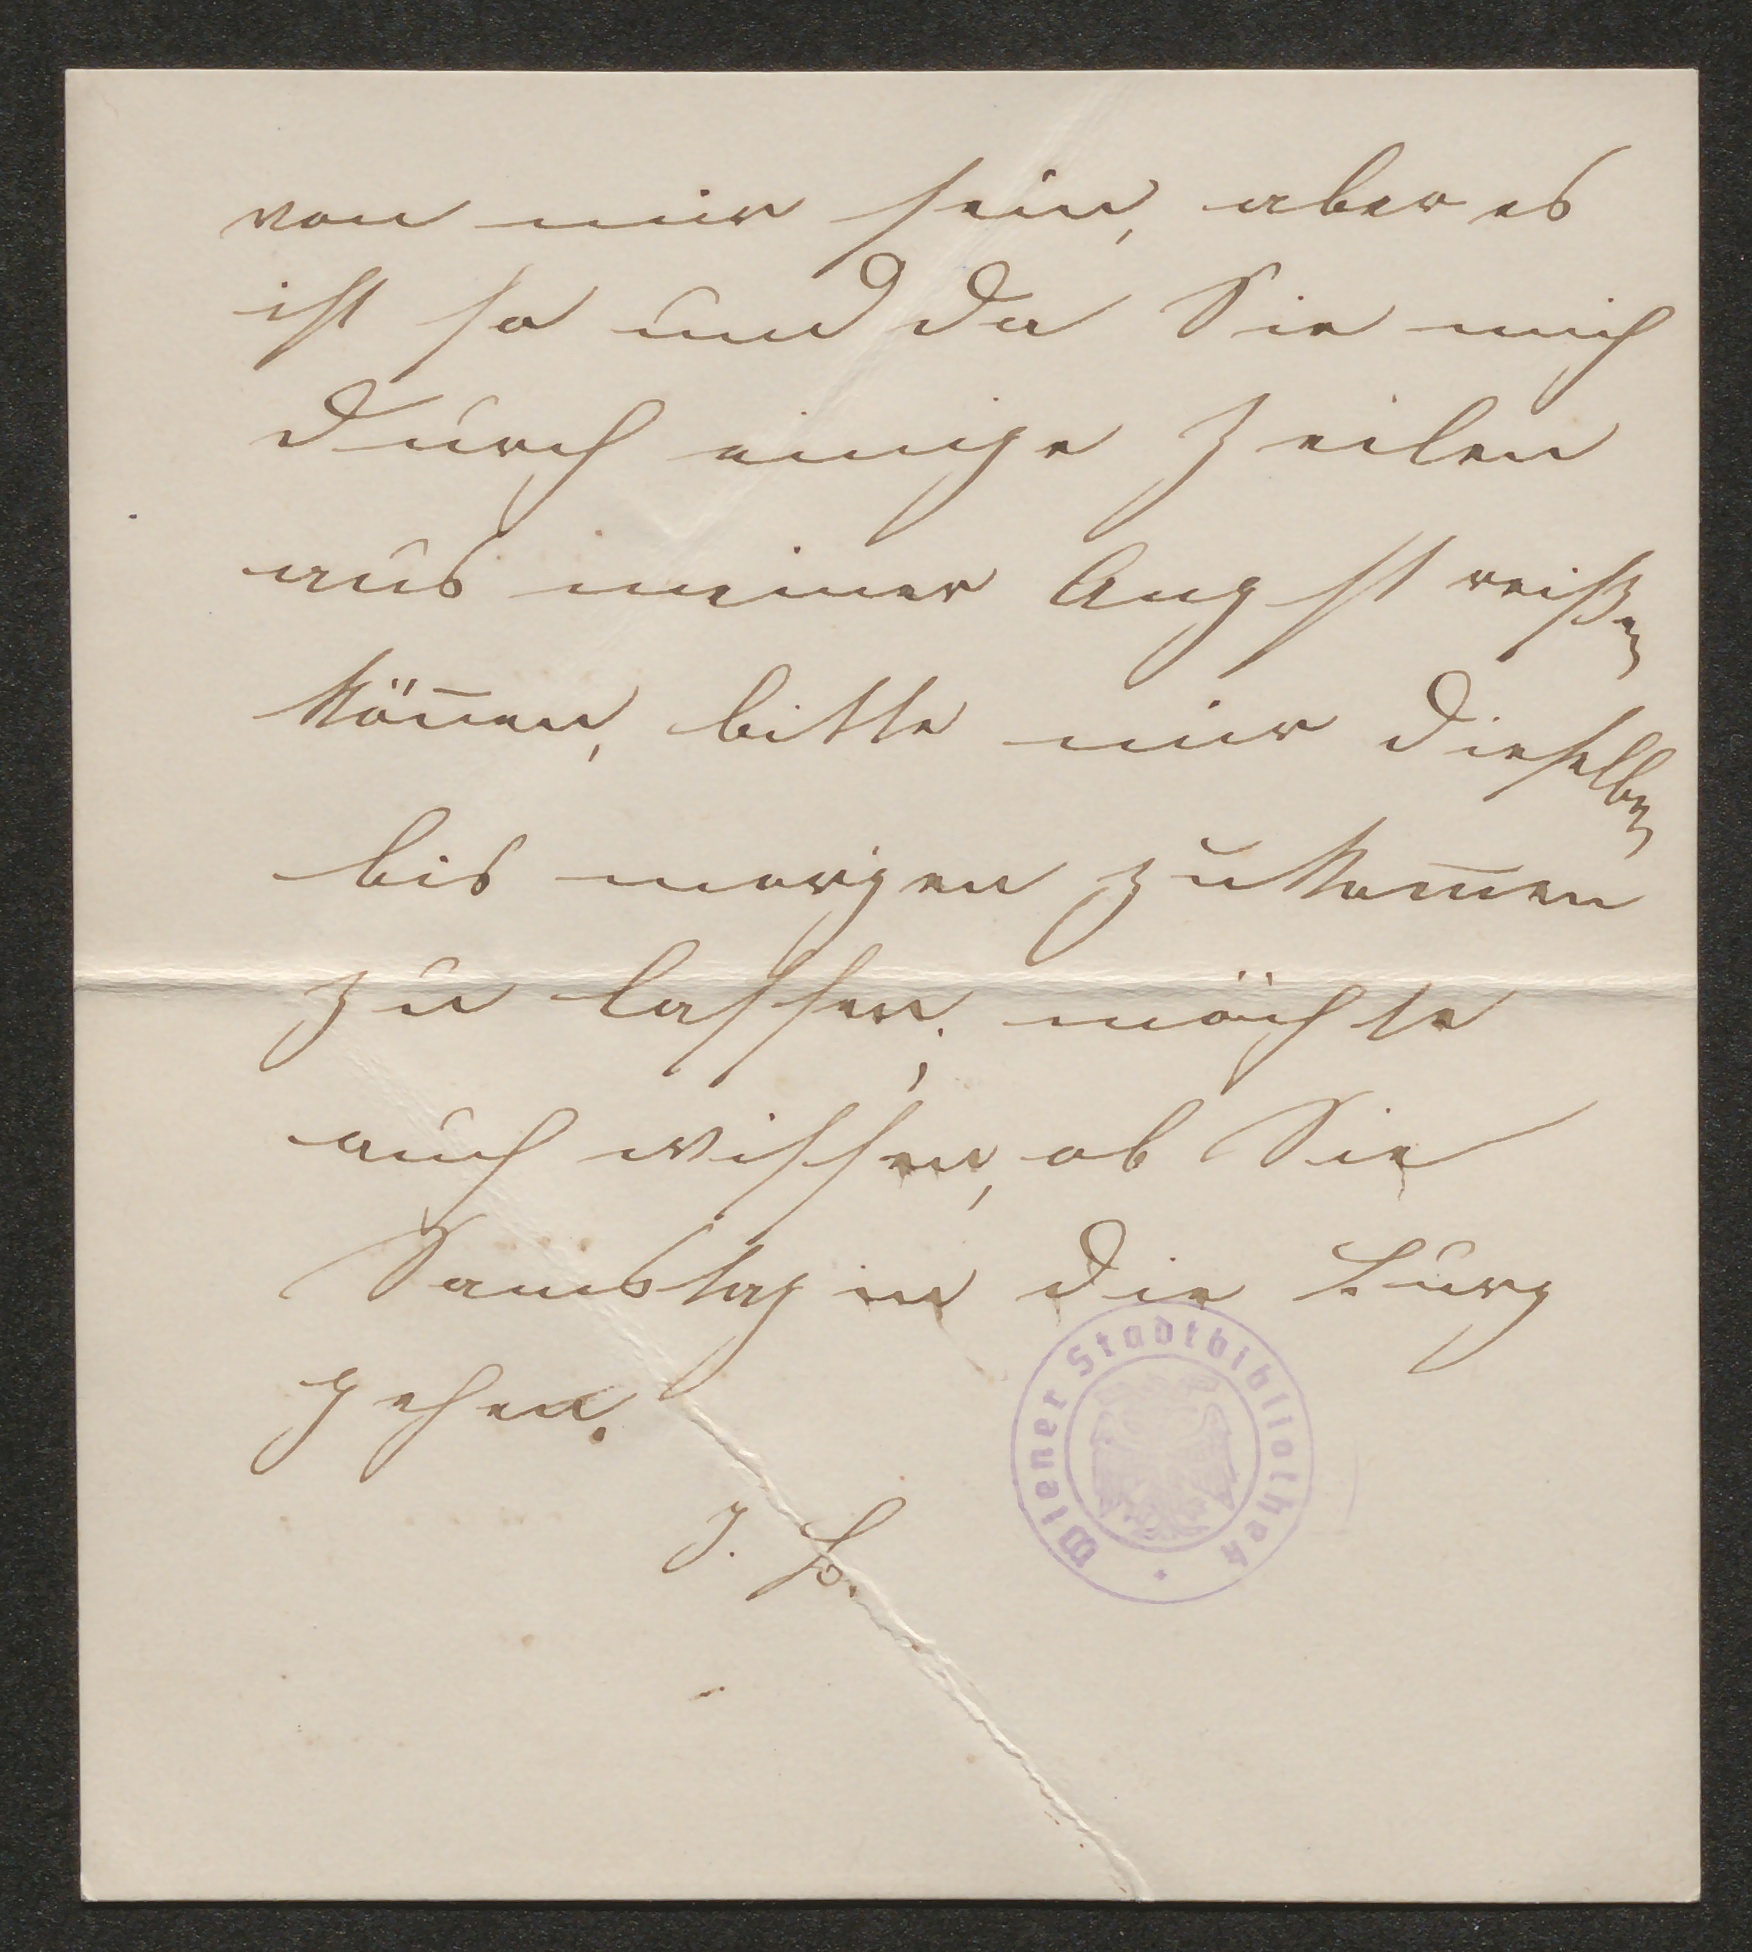 von mir sein, aber es
ist so und da Sie mich
durch einige Zeilen
aus meiner Angst reißen
kön̄en, bitte mir dieselben
bis morgen zukom̄en
zu lassen; möchte
auch wissen, ob Sie
Samstag in die Burg
gehen.
Wiener Stadtbibliothek